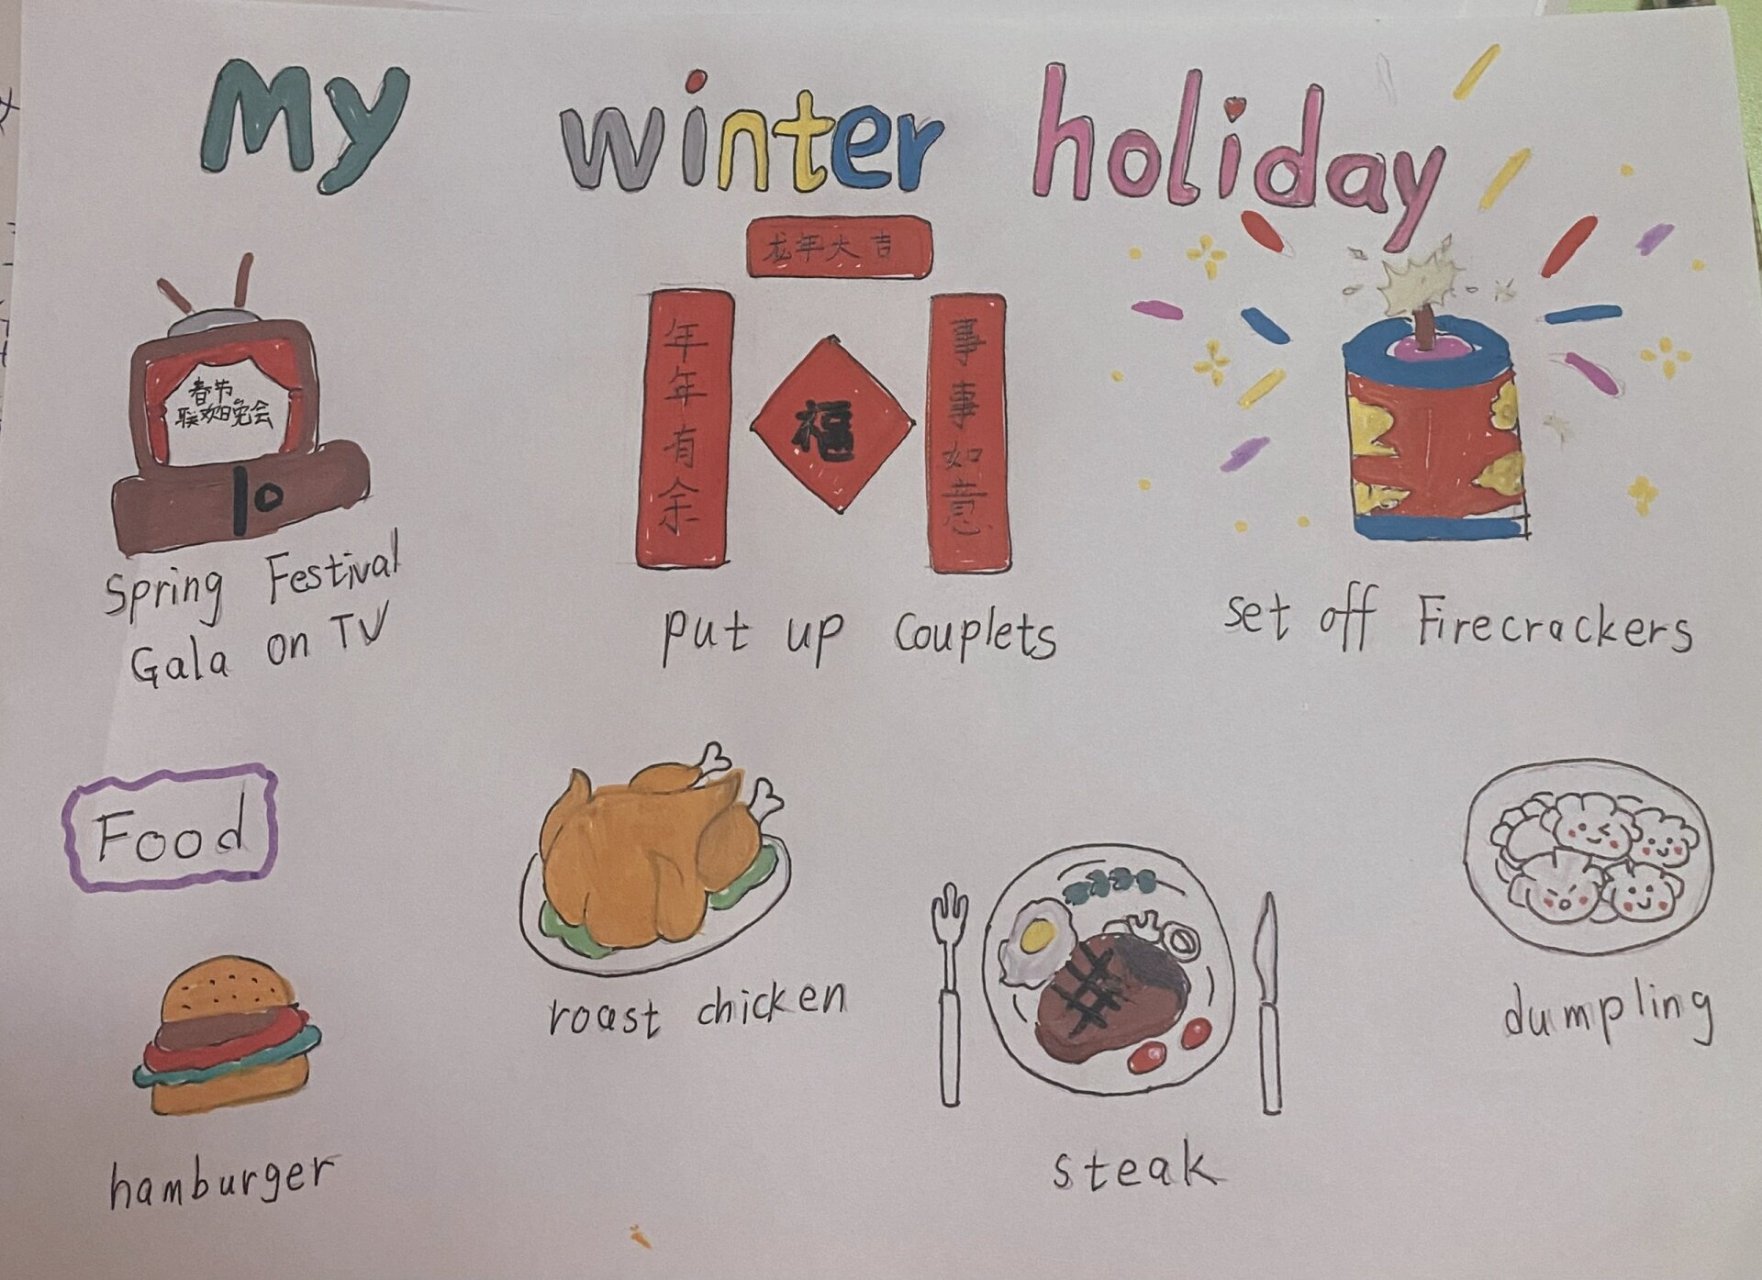 My winter holiday
春节
联欢晚会
Spring Festival
Gala on TV
龙年大吉
年年有余
福
事事如意
put up couplets
set off Firecrackers
Food
hamburger
roast chicken
steak
dumpling